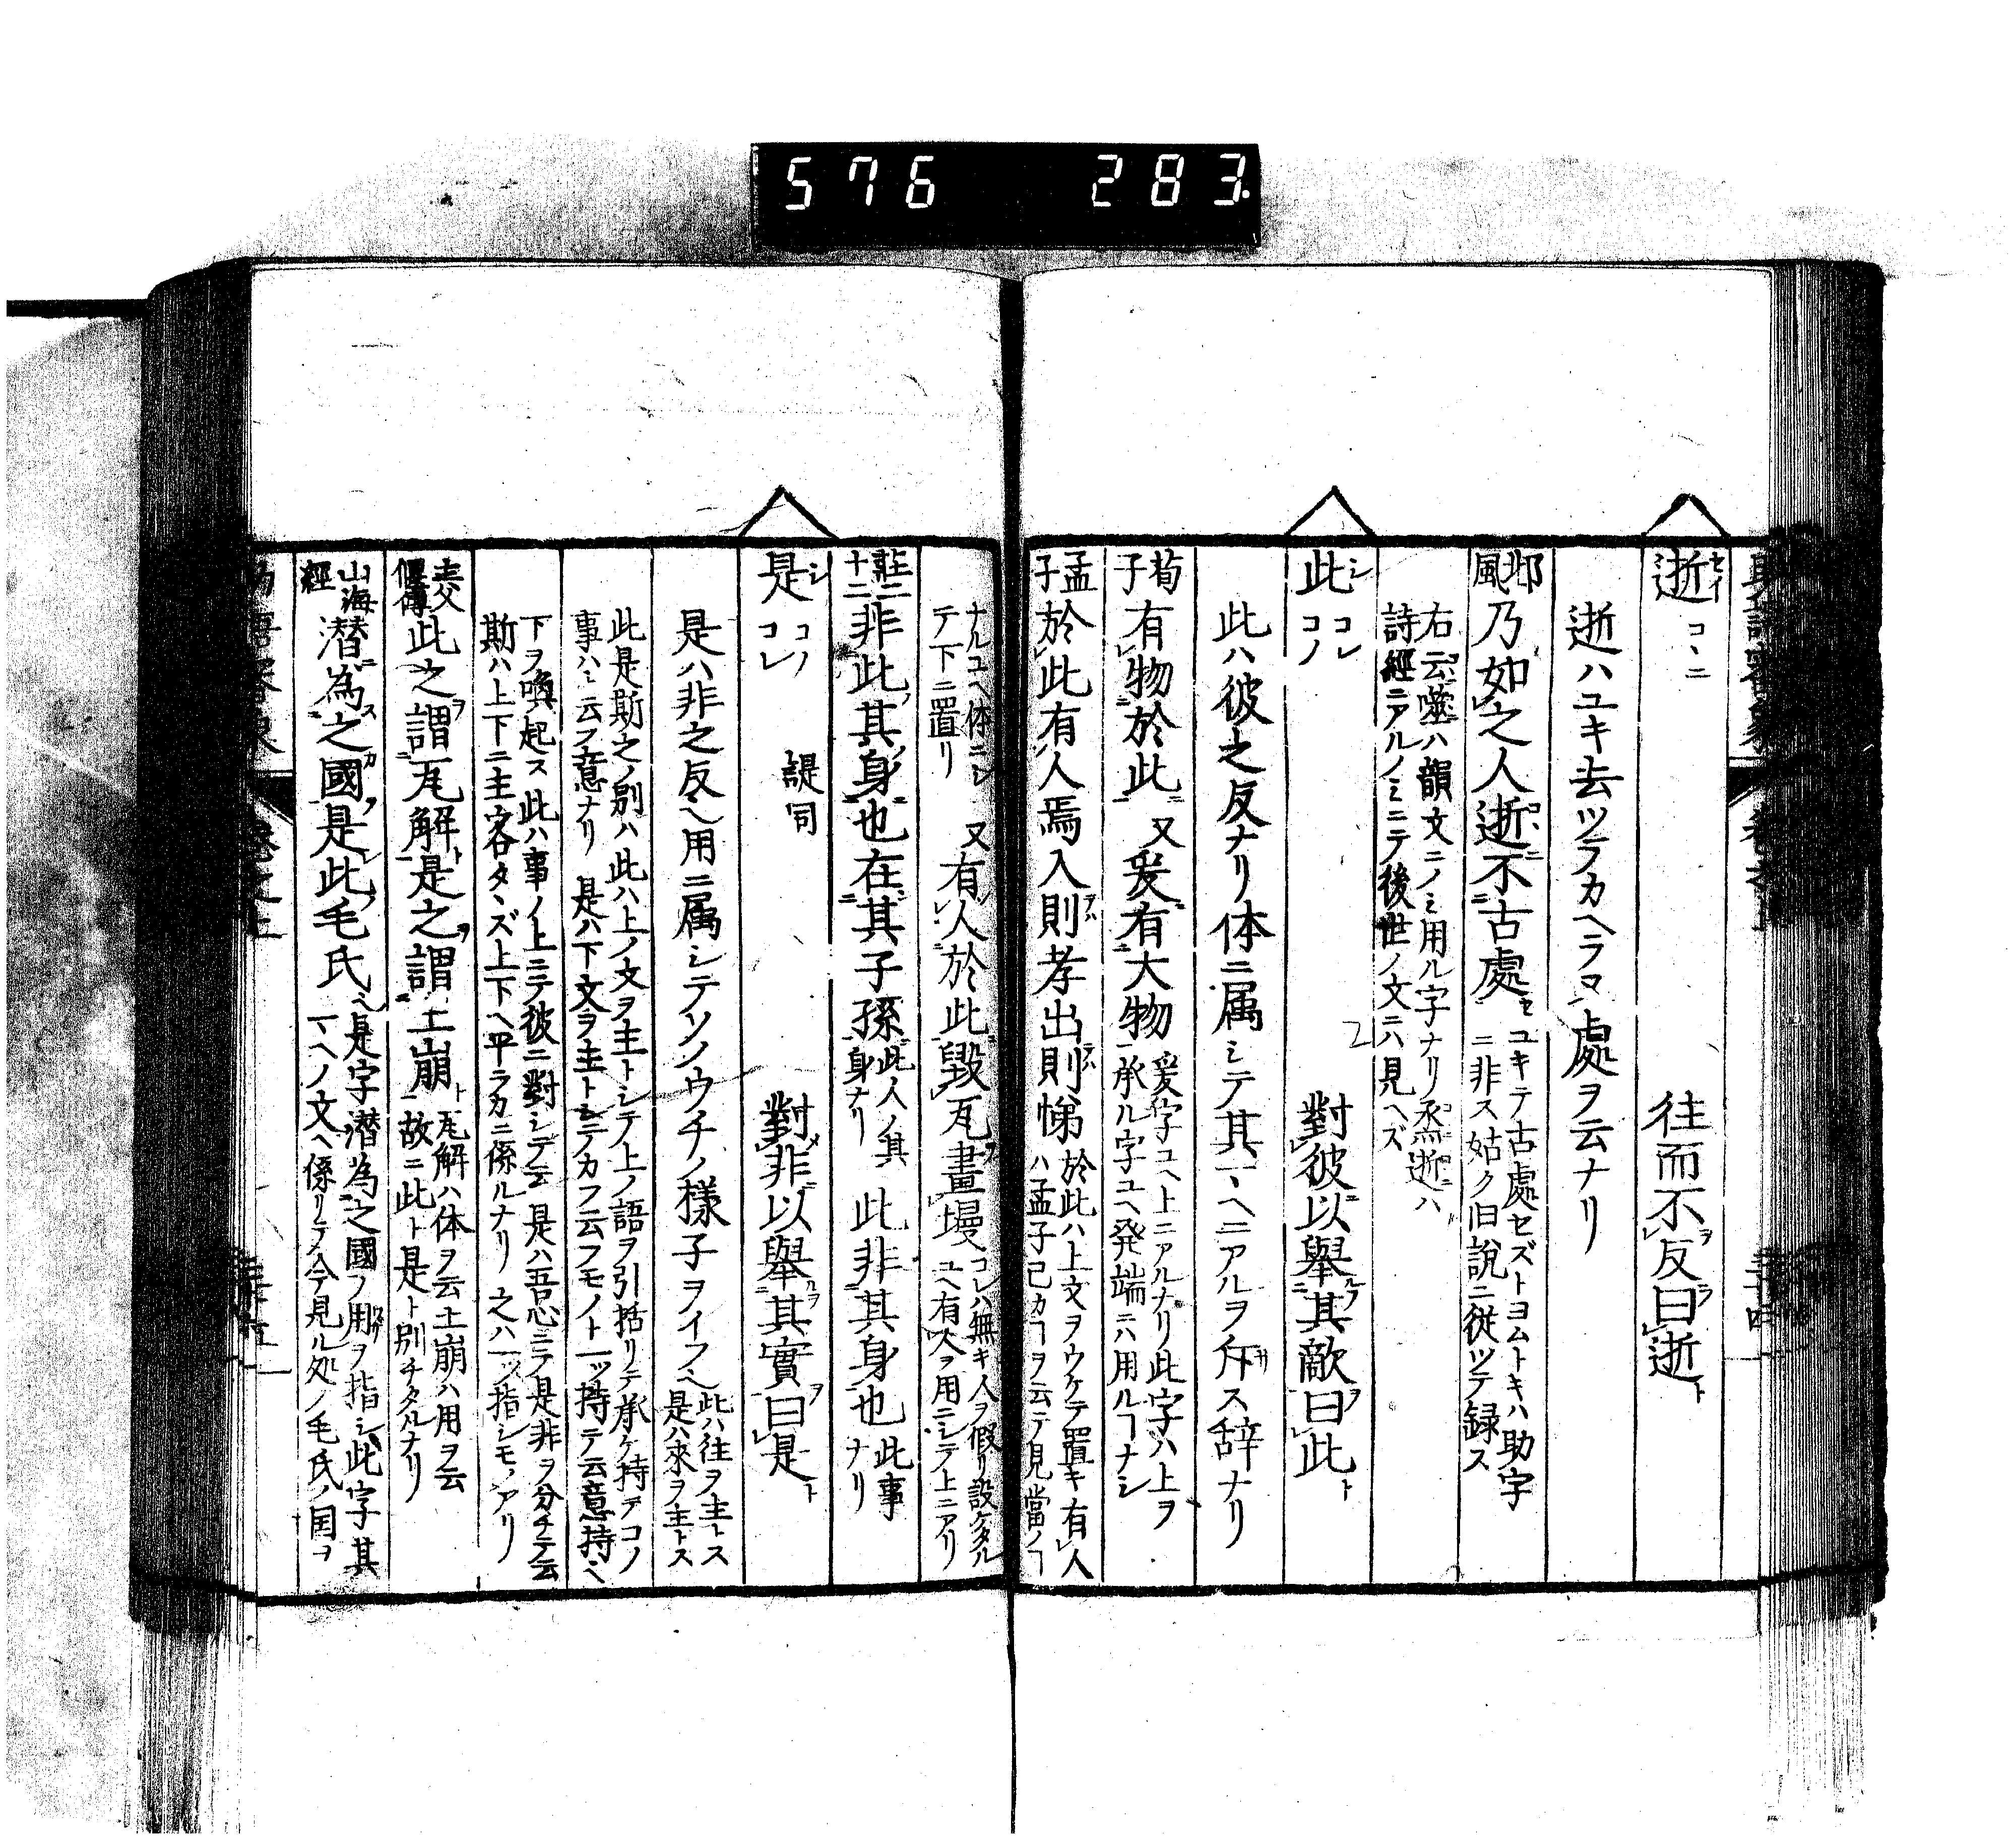 576 283.
逝 セイ コヽニ 往而不反曰逝
逝ハユキ去ツテカヘラヌ處ヲ云ナリ
邶風 乃如之人逝不古處 ユキテ古處セズトヨムトキハ助字
ニ非ス姑ク旧說ニ從ツテ録ス
右云噬ハ韻文ニノミ用ル字ナリ烝逝ハ
詩經ニアルノミニテ後世ノ文ニハ見ヘズ
此 シ コレ コノ 對彼以舉其敵曰此
此ハ彼之反ナリ体ニ属シテ其一ヘニアルヲ斥ス辞ナリ
荀子 有物於此 又 爰有大物 爰字ユヘ上ニアルナリ此字ハ上ヲ
承ル字ユヘ発端ニハ用ルヿナシ
孟子 於此有人焉入則孝出則悌 於此ハ上文ヲウケテ置キ有人
ハ孟子己カヿヲ云テ見當ノヿ
ナルユヘ体ニシ
テ下ニ置リ
又 有人於此毀瓦畫墁 コレハ無キ人ヲ假リ設ケタル
ユヘ有人ヲ用ニシテ上ニアリ
莊二十二 非此其身也在其子孫 此人ノ其
身ナリ
此非其身也 此事
ナリ
是 シ コノ コレ 諟同 對非以舉其實曰是
是ハ非之反ヘ用ニ属シテソノウチノ様子ヲイフヘ 此ハ往ヲ主トス
是ハ來ヲ主トス
此是斯之ノ別ハ此ハ上ノ文ヲ主トシテ上ノ語ヲ引括リテ承ケ持テコノ
事ハト云フ意ナリ 是ハ下文ヲ主トシテカフ云フモノト一ッ持テ云意持ヘ
下ヲ喚起ス此ハ事ノ上ニテ彼ニ對シテ云 是ハ吾心ニテ是非ヲ分チテ云
斯ハ上下ニ主客タヽズ上下ヘ平ラカニ係ルナリ 之ハ一ッ指シモノアリ
主父偃傳 此之謂瓦解是之謂土崩 瓦解ハ体ヲ云土崩ハ用ヲ云
故ニ此ト是ト別チタルナリ
山海經 潜為之國是此毛氏 是字潜為之國ノ用ヲ指シ此字其
一ヘノ文ヘ係リテ今見ル処ノ毛氏ノ国ヿ